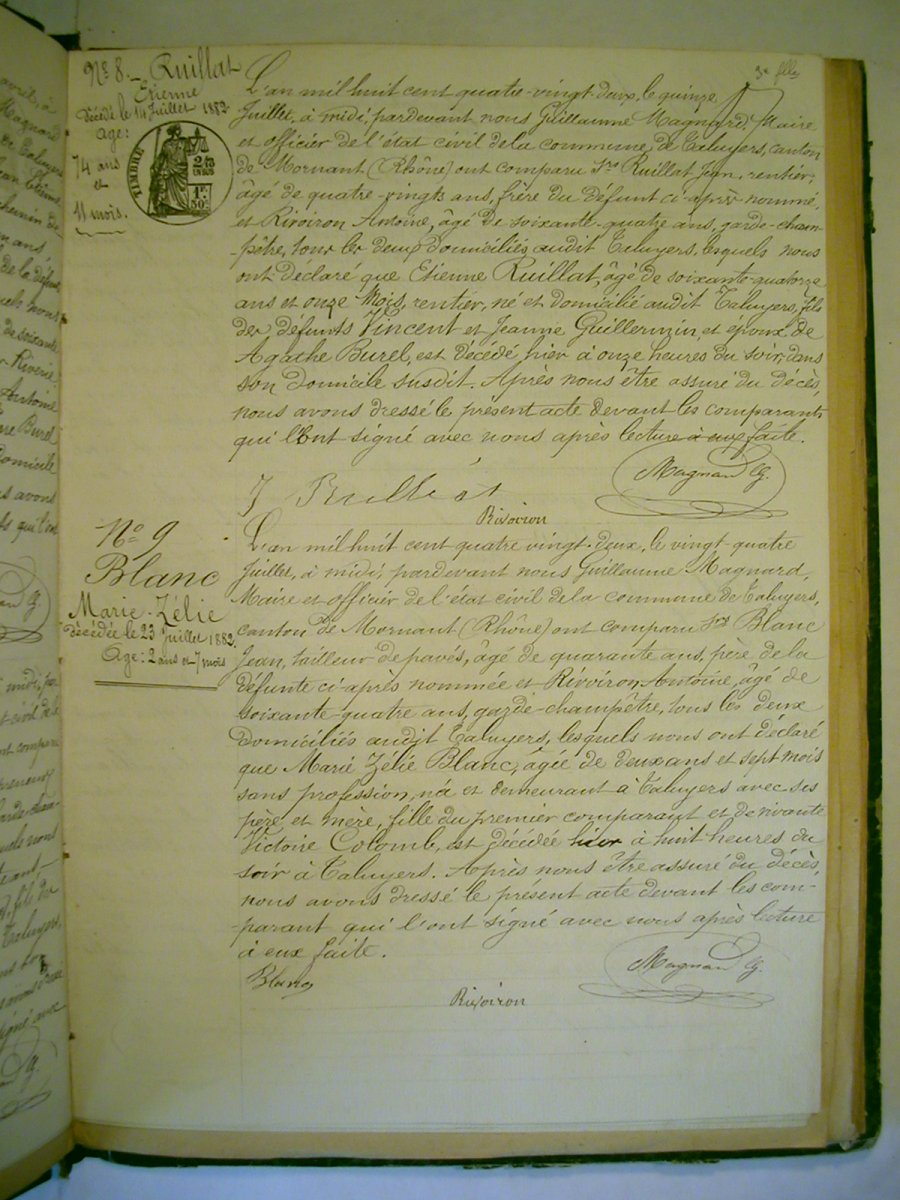 3e fllet
No 8. Ruillat
Etienne
Décédé le 14 Juillet 1882.
Age:
74 ans
et
11 mois.
TIMBRE
L'an mil huit cent quatre-vingt-deux, le quinze
Juillet, à midi, pardevant nous Guillaume Magnard, Maire
et officier de l'état civil de la commune de Taluyers, canton
de Mornant (Rhône) ont comparu Srs Ruillat Jean, rentier,
âgé de quatre-vingts ans, frère du défunt ci-après nommé,
et Rivoiron Antoine, âgé de soixante-quatre ans, garde-cham-
-pêtre, tous les deux domiciliés audit Taluyers, lesquels nous
ont déclaré que Etienne Ruillat, âgé de soixante-quatorze
ans et onze Mois, rentier, né et domicilié audit Taluyers, fils
des défunts Vincent et Jeanne Guillermin, et époux de
Agathe Burel, est décédé hier à onze heures du soir, dans
son domicile susdit. Après nous être assuré du décès,
nous avons dressé le présent acte devant les comparants
qui l'ont signé avec nous après lecture à eux faite.
J Ruillat
Rivoiron
Magnard G.
No 9
Blanc
Marie-Zélie
Décédée le 23 Juillet 1882.
Age: 2 ans et 7 mois
L'an mil huit cent quatre vingt-deux, le vingt-quatre
Juillet, à midi, pardevant nous Guillaume Magnard,
Maire et officier de l'état civil de la commune de Taluyers,
canton de Mornant (Rhône) ont comparu Srs Blanc
Jean, tailleur de pavés, âgé de quarante ans, père de la
défunte ci-après nommée et Rivoiron Antoine, âgé de
soixante-quatre ans, garde-champêtre, tous les deux
domiciliés audit Taluyers, lesquels nous ont déclaré
que Marie Zélie Blanc, âgée de deux ans et sept mois
sans profession, née et demeurant à Taluyers avec ses
père et mère, fille du premier comparant et de vivante
Victoire Colomb, est décédée hier à huit heures du
soir à Taluyers. Après nous être assuré du décès,
nous avons dressé le présent acte devant les com-
parant qui l'ont signé avec nous après lecture
à eux faite.
Blanc
Rivoiron
Magnard G.